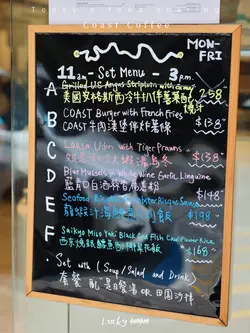 Coast Coffee
MON-
FRI
11am - Set Menu - 3pm.
A Grilled US Angus Striploin with Gravy
美國安格斯西冷牛扒伴薯菜配燒汁 $258
B COAST Burger with French Fries
COAST 牛肉漢堡伴炸薯條 $138
C Laksa Udon with Tiger Prawns
$138
D Blue Mussels in White Wine Garlic Linguine
藍青口白酒 $148
E Seafood Lobster Bisque Sauce
龍蝦汁海鮮 飯 $198
F Saikyo Miso Yaki Black Cod Fish Cauliflower Rice
西京燒銀鱈魚配椰菜花飯 $168
Set with (Soup / Salad and Drink)
套餐 配 是日餐湯 OR 田園沙律